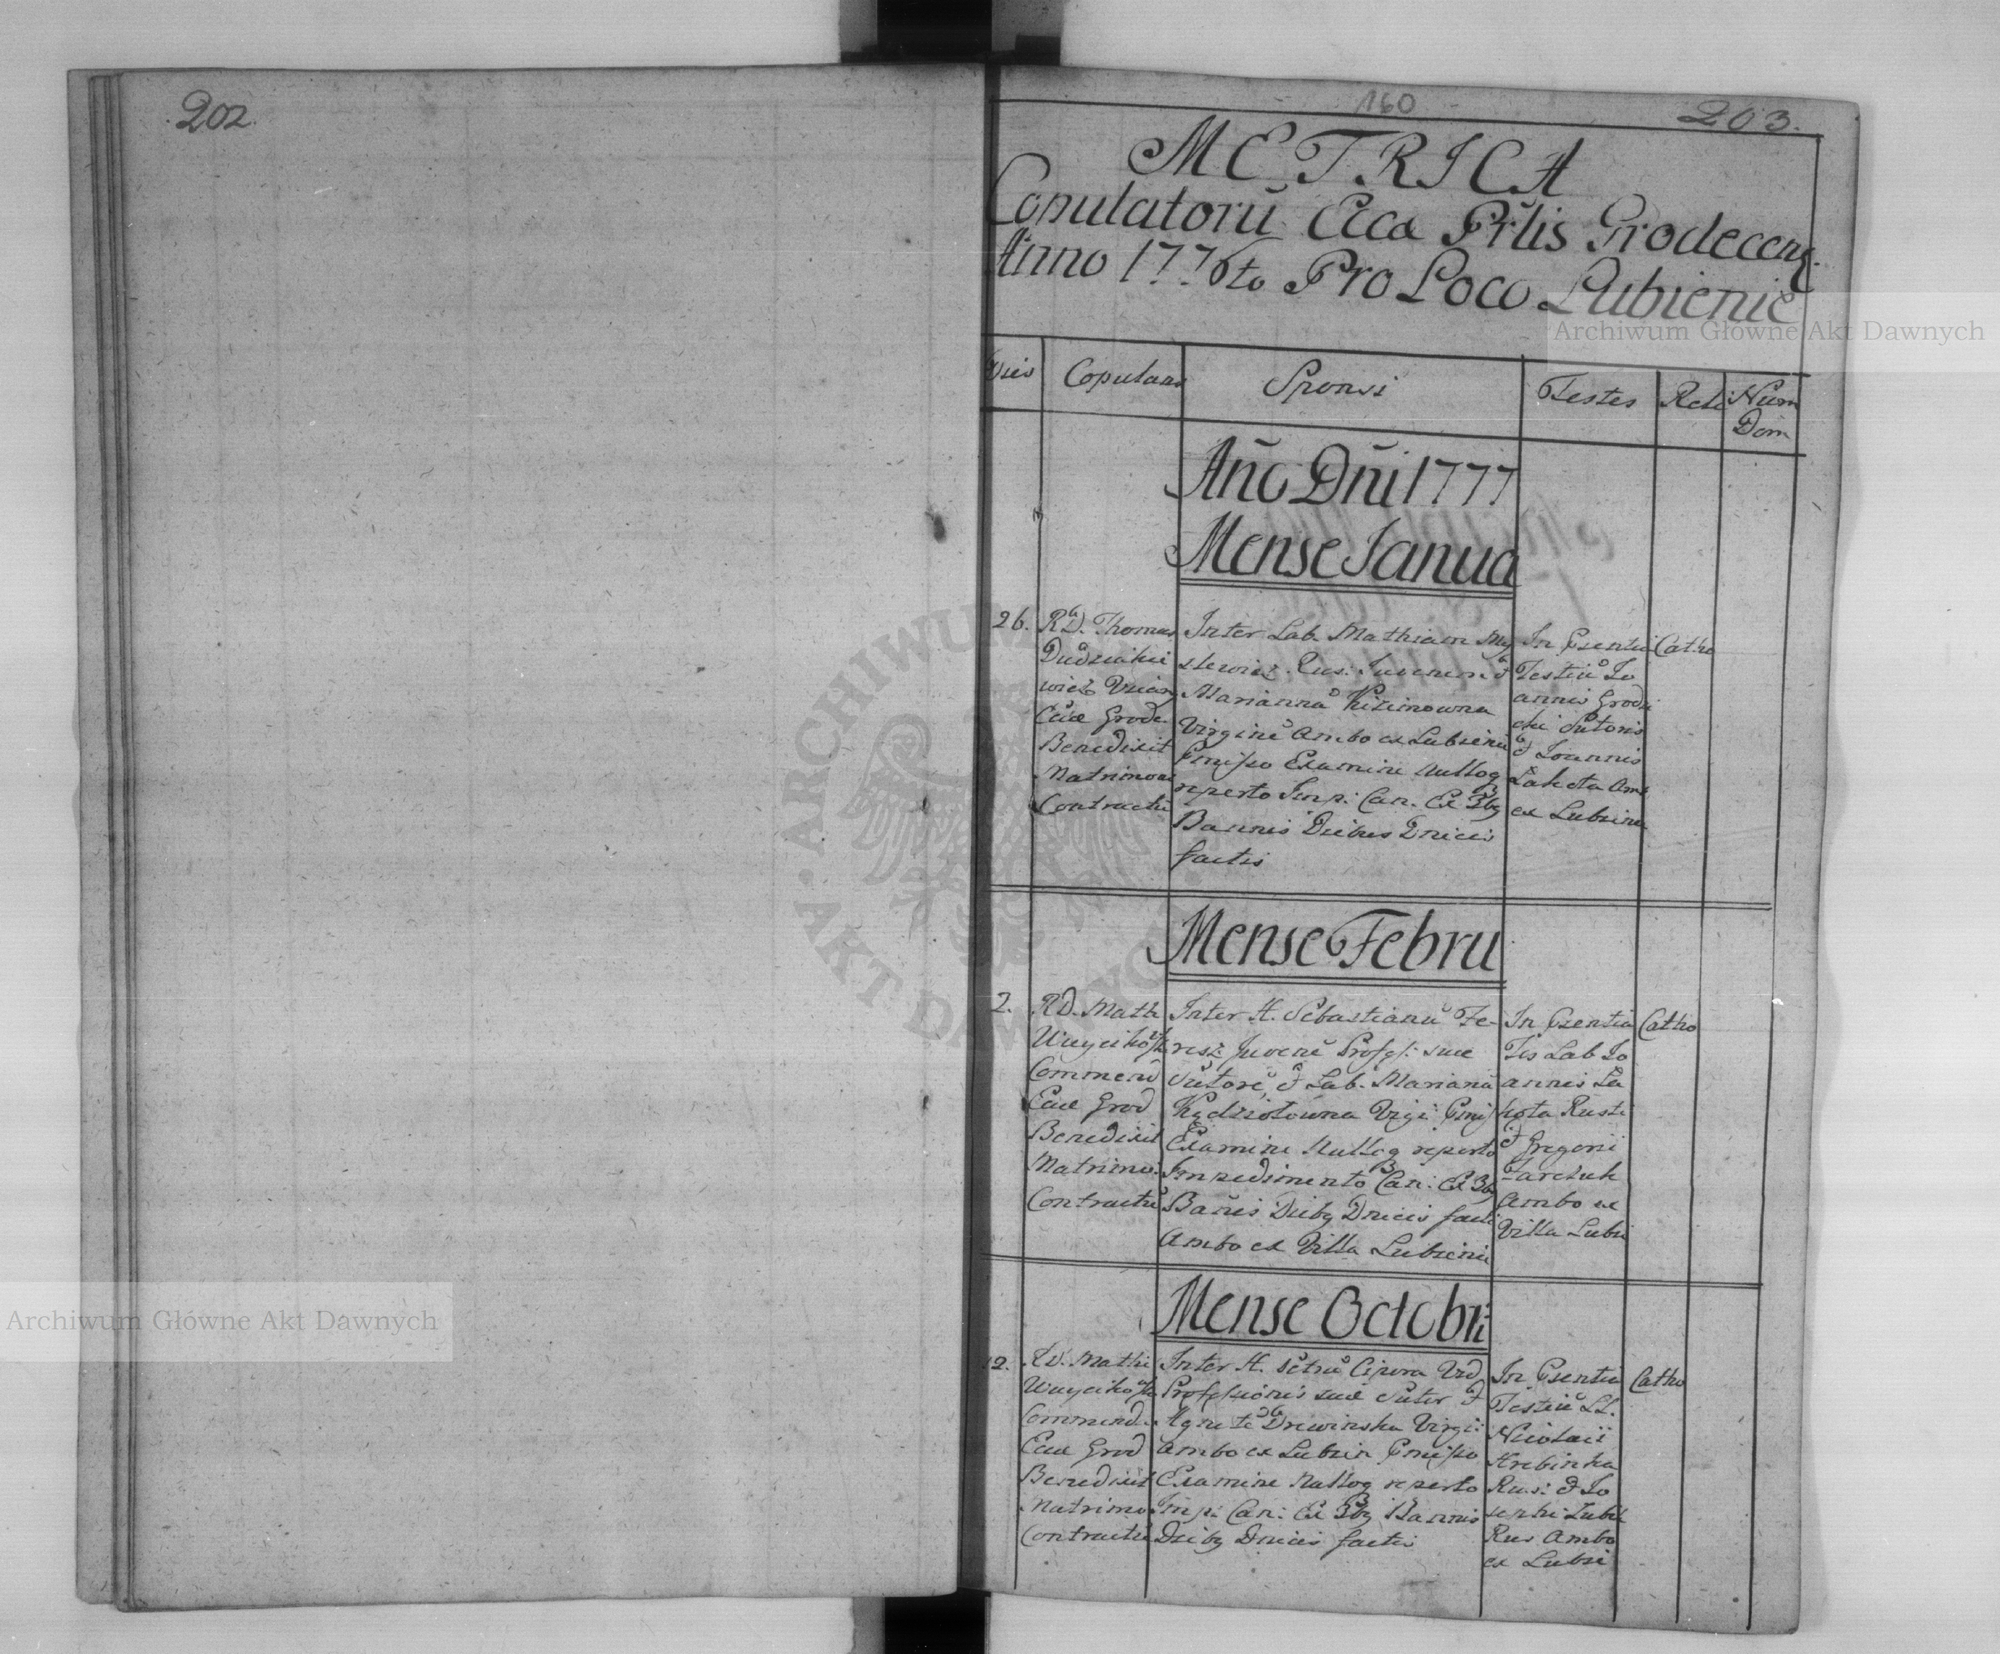 202
160
203.
METRICA
Copulatorũ Ecca Prlis Grodecens
Anno 1776to Pro Loco Lubienie
Dies
Copulans
Sponsi
Testes
Reli
Num
Dom
Año Dñi 1777
Mense Janua
26.
RD. Thomas
Grode
Benedixit
Matrimon
Contractu
Inter Lab. Mathiam My
Rus: Juvenem &
Marianna Kizimowna
Virgine Ambo ex Lubienie
Examine Nulloq
reperto Imp: Can. Ex 3bq
Bannis Diebus Dnicis
factis
In Psentia
Testiu Jo
annis Grodz
cki Sutoris
& Joannis
Lakota Am
ex Lubien
Catho
Mense Febru
2.
RD. Math
Commend
Eccae Grod
Benedixit
Matrimo
Contractu
Inter H. Sebastianũ Fe-
resz Juvenẽ Profes: suae
Sutorẽ, & Lab. Marianũ
Kędziołowna Virgi
Examine Nulloq reperto
Impedimento Can: Ex 3bq
Banis Diebq Dnicis facti
Ambo ex Villa Lubienie
In Psentia
Tis Lab Jo
annis La
kota Rusti
& Gregorii
Ambo ex
Villa Lubi
Catho
Mense Octobri
12.
RD. Mathi
Commend.
Eccae Grod
Benedixit
Matrimo
Contractu
Inter H. Petrũ Cipora Vid
Professionis suae Suter &
Agnetẽ Drewinska Virgi:
Ambo ex Lubien
Examine Nulloq reperto
Imp: Can: Ex 3bq Bannis
Diebq Dnicis factis
In Psentia
Testiũ LL.
Nicolaii
Hrebinka
Rus: & Jo
sephi
Rus Ambo
ex Lubie
Catho
Archiwum Główne Akt Dawnych
Archiwum Główne Akt Dawnych